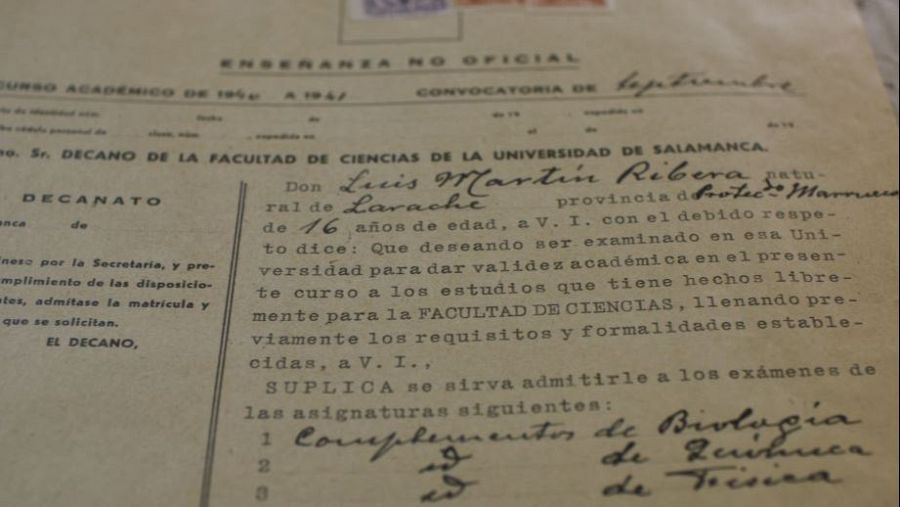 ENSEÑANZA NO OFICIAL
CURSO ACADÉMICO DE 1940 A 1941 CONVOCATORIA DE Septiembre
de identidad núm. fecha de de 19 expedida en
cédula personal de clase, núm. , expedida en el de de 19
mo. Sr. DECANO DE LA FACULTAD DE CIENCIAS DE LA UNIVERSIDAD DE SALAMANCA.
DECANATO
anca de
por la Secretaría, y pre-
mplimiento de las disposicio-
tes, admítase la matrícula y
que se solicitan.
EL DECANO,
Don Luis Martín Ribera natu-
ral de Larache provincia d Protec.do Marruecos
de 16 años de edad, a V. I. con el debido respe-
to dice: Que deseando ser examinado en esa Uni-
versidad para dar validez académica en el presen-
te curso a los estudios que tiene hechos libre-
mente para la FACULTAD DE CIENCIAS, llenando pre-
viamente los requisitos y formalidades estable-
cidas, a V. I.,
SUPLICA se sirva admitirle a los exámenes de
las asignaturas siguientes:
1 Complementos de Biología
2 id de Química
3 id de Física